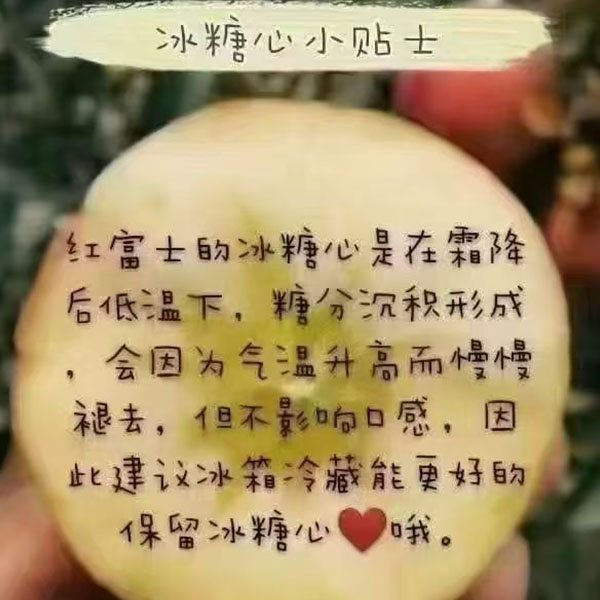 冰糖心小贴士
红富士的冰糖心是在霜降
后低温下，糖分沉积形成
，会因为气温升高而慢慢
褪去，但不影响口感，因
此建议冰箱冷藏能更好的
保留冰糖心❤️哦。